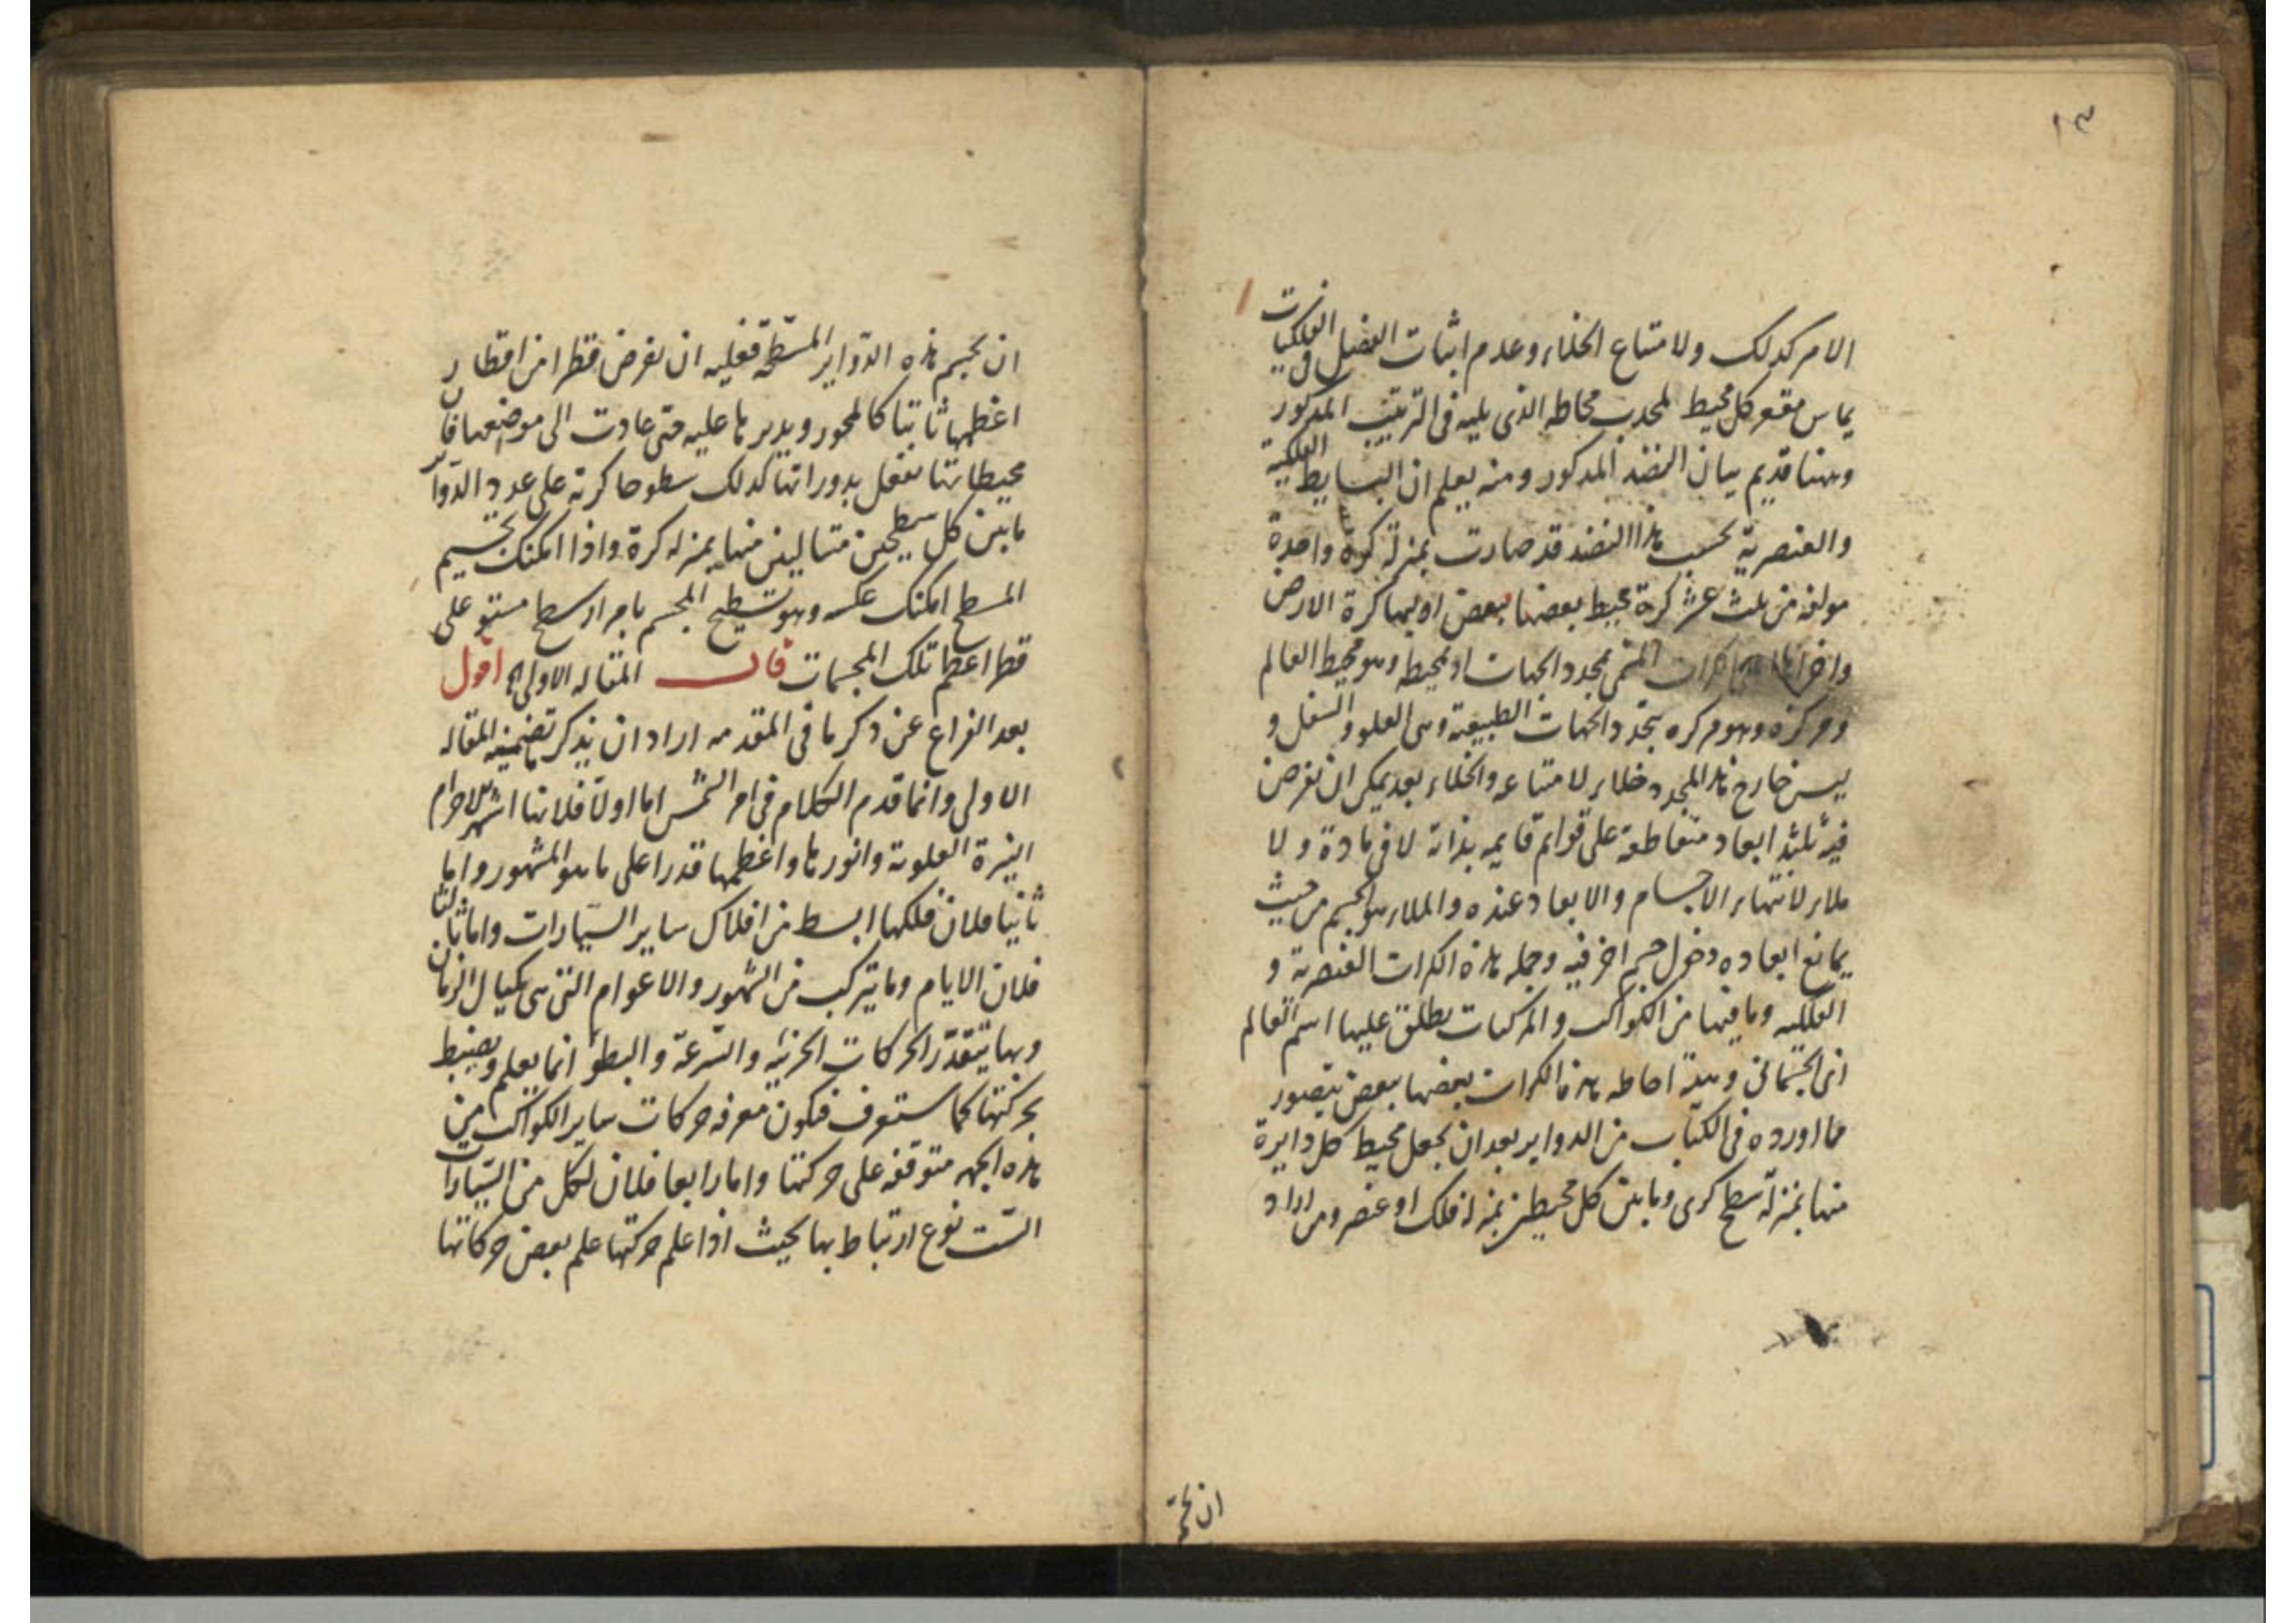 ١٣
الامر كذلك ولامتناع الخلاء وعدم اثبات الفضل فى الفلكيات
يماس مقعر كل محيط لمحدب محاطه الذى يليه فى الترتيب المذكور
وههنا قديم بيان النضد المذكور ومنه يعلم ان البسايط الفلكية
والعنصرية بحسب هذا النضد قد صارت بمنزلة كرة واحدة
مولفه من ثلث عشر كرة محيط بعضها ببعض اوليها كرة الارض
الكرات المسمى بمحدد الجهات اذ بمحيطه وهو محيط العالم
ومركزه وهو مركزه يتحدد الجهات الطبيعة وهى العلو والسفل و
ليس خارج هذا المحدد خلاء لامتناعه والخلاء بعد يمكن ان نفرض
فيه ثلثة ابعاد متقاطعة على قوايم قايمه بذاته لا فى مادة ولا
ملاء لانتهاء الاجسام والابعاد عنده والملاء هو الجسم من حيث
يمانع ابعاده دخول جسم اخر فيه وجمله هذه الكرات العنصرية و
الفلكيه وما فيها من الكواكب والمركبات يطلق عليها اسم العالم
اى الجسمانى وهيئة احاطه هذه الكرات بعضها ببعض يتصور
مما اورده فى الكتاب من الدواير بعد ان يجعل محيط كل دايرة
منها بمنزلة سطح كرى وما بين كل محيطين بمنزلة فلك او عنصر ومن اراد
ان يجسم
ان يجسم هذه الدواير المسطحة فعليه ان يفرض قطرا من اقطار
اعظمها ثابتا كالمحور ويديرها عليه حتى عادت الى موضعها فان
محيطاتها تفعل بدوراتها كذلك سطوحا كرية على عدد الدواير
ما بين كل سطحين متتاليين منها بمنزله كرة واذا امكنك تجسيم
المسطح امكنك عكسه وهو تسطيح المجسم باجراء سطح مستو على
قطر اعظم تلك المجسمات قال المقاله الاولى اه اقول
بعد الفراغ عن ذكر ما فى المقدمه اراد ان يذكر ما تضمنه المقاله
الاولى وانما قدم الكلام فى امر الشمس اما اولا فلانها اشهر الاجرام
النيرة العلوية وانورها واعظمها قدرا على ما هو المشهور واما
ثانيا فلان فلكها ابسط من افلاك ساير السيارات واما ثالثا
فلان الايام وما يتركب من الشهور والاعوام التى هى مكيال الزمان
وبها يتقدر الحركات الجزئيه والسرعة والبطؤ انما يعلم ويضبط
بحركتها كما ستعرف فيكون معرفه حركات ساير الكواكب من
هذه الجهه متوقفه على حركتها واما رابعا فلان لكل من السيارات
الست نوع ارتباط بها بحيث اذا علم حركتها علم بعض حركاتها